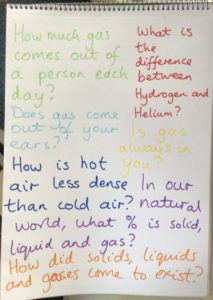 How much gas
comes out of
a person each
day?
What is
the
difference
between
Hydrogen and
Helium?
Does gas come
out of your
ears?
Is gas
always in
you?
How is hot
air less dense
than cold air?
In our
natural
world, what % is solid,
liquid and gas?
How did solids, liquids
and gases come to exist?